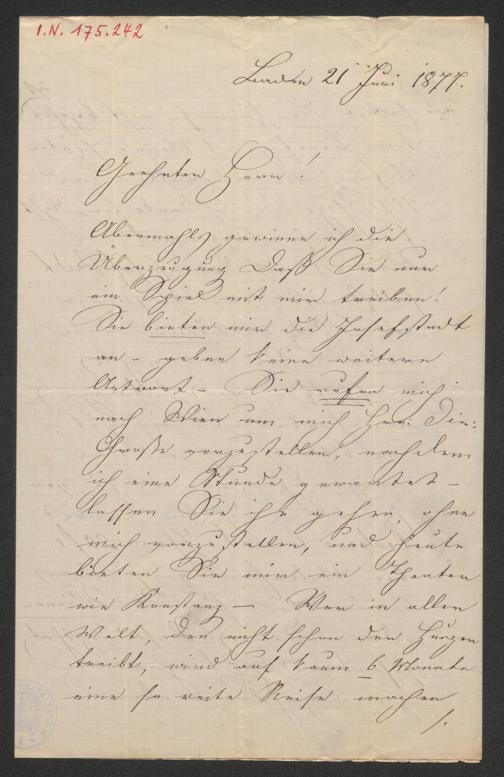 I.N. 175.242
Baden 21 Juni 1877.
Geehrter Herr!
Abermahls gewinne ich die
Überzeugung daß Sie nur
ein Spiel mit mir treiben!
Sie bieten mir die Josefstadt
an – geben keine weitere
Antwort – Sie rufen mich
nach Wien um mich Hrn: Dir:
Große vorzustellen, nachdem
ich eine Stunde gewartet –
lassen Sie ihn gehen, ohne
mich vorzustellen, und heute
bieten Sie mir ein Theater
wie Konstanz – Wer in aller
Welt, den nicht schon der Hunger
treibt, wird auf kaum 6 Monate
eine so weite Reise machen
/.